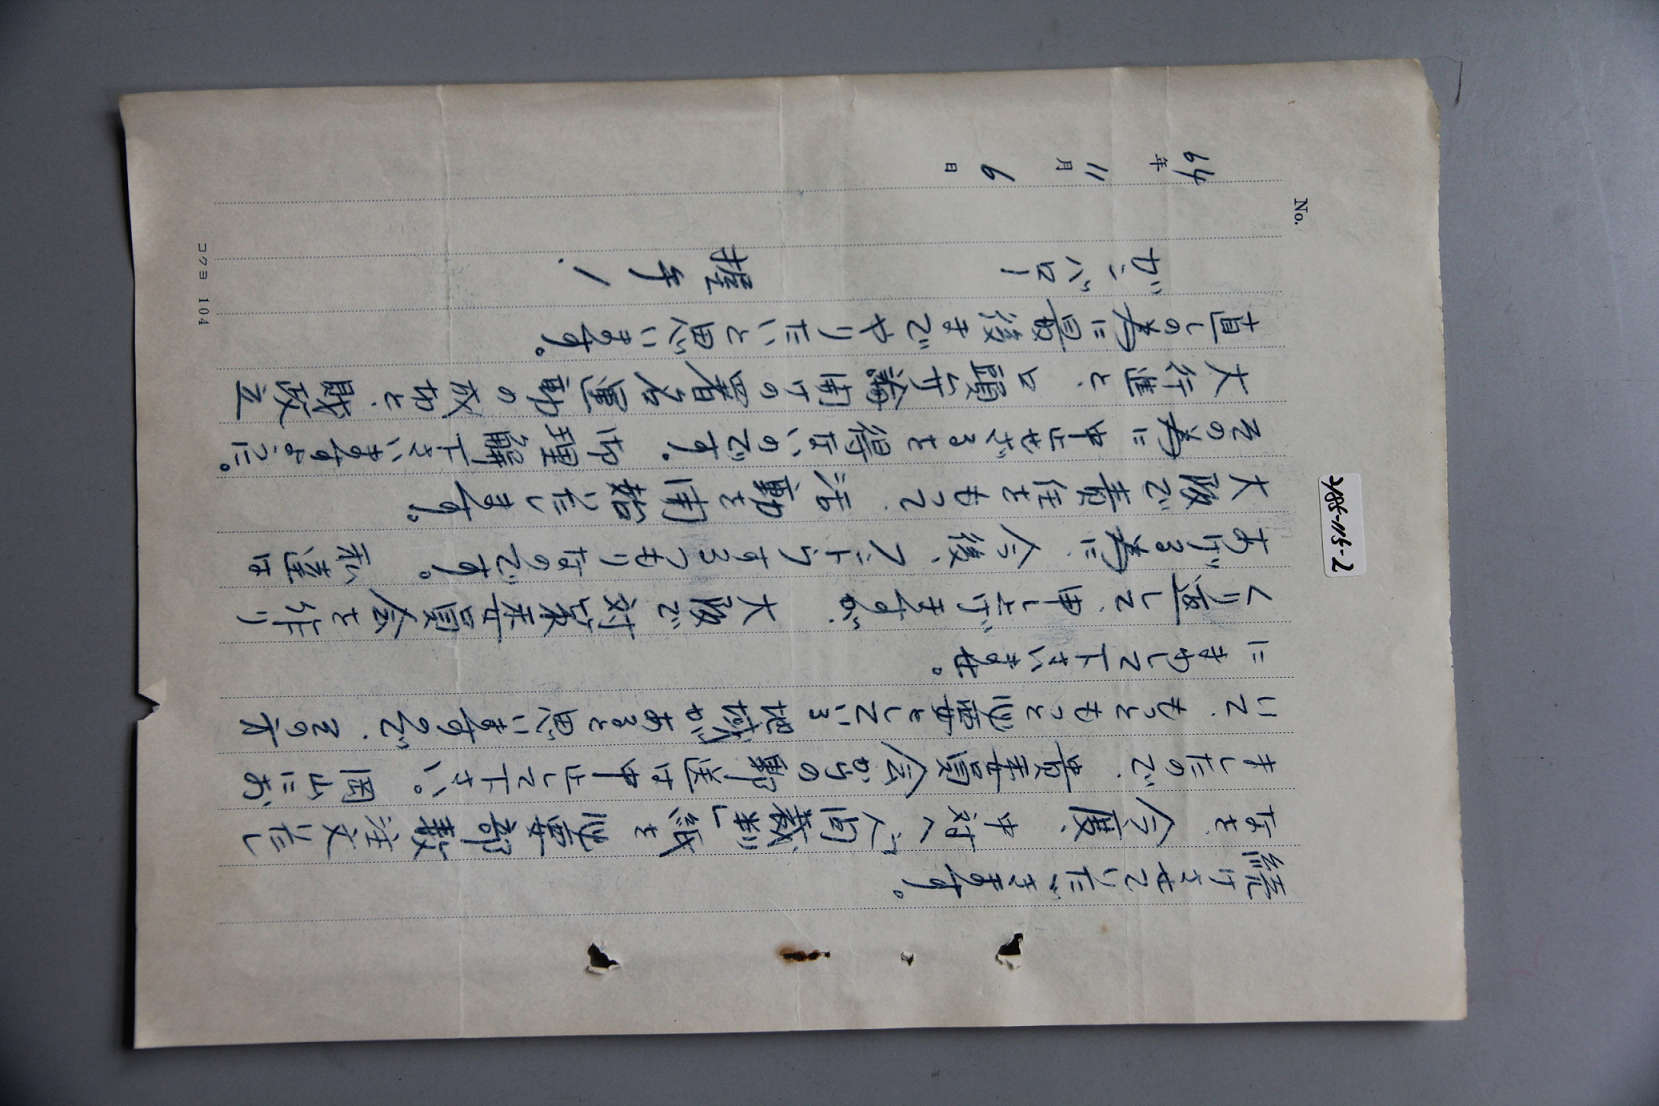 No.
続けさせていただきます。
なを、今度、中対へ、「人間裁判」紙を必要部数注文いたし
ましたので、貴委員会からの郵送は中止して下さい。岡山にお
いて、もっともっと必要としている地域があると思いますので、その方
にまわして下さいませ。
くり返して、申し上げますが、大阪で対策委員会を作り
あげる為に、今後、フントウするつもりなのです。私達は
大阪で責任をもって、活動を開始いたします。
その為に中止せざるを得ないのです。御理解下さいますように。
大行進と、口頭弁論開けの署名運動の成功と、財政立
直しの為に最後までやりたいと思います。
ガンバロー 握手!
64年11月6日
コクヨ 104
2188-115-2